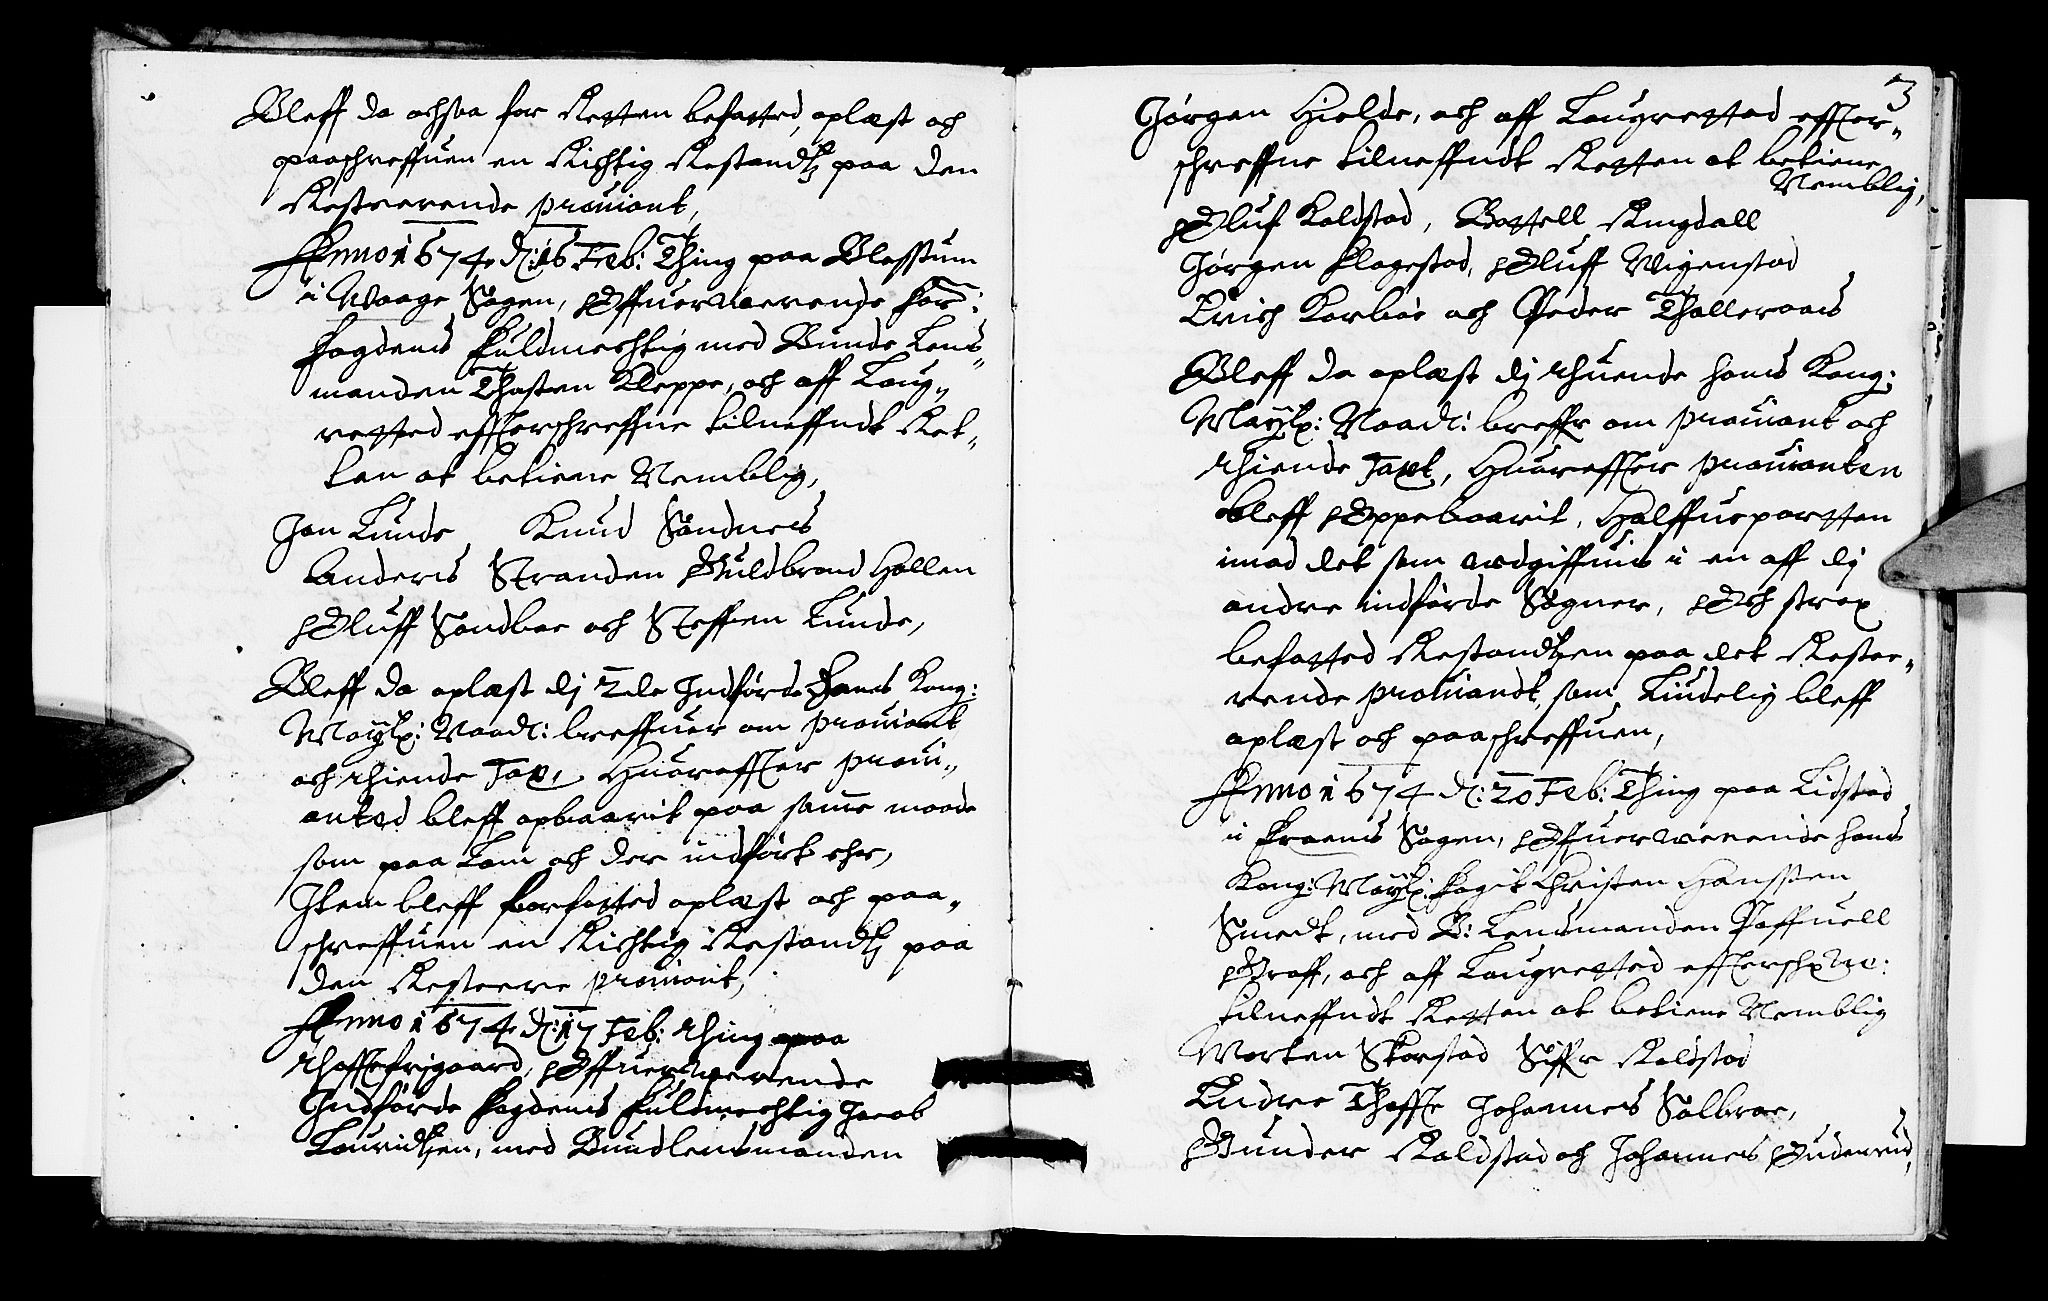 Bleff da ochsaa for Retten befatted, oplæst och
paaschreffuen en Richtig Restandtz paa den
Resterende proviant,
Anno 1674 d: 16 Feb: Thing paa Blessum
i Waage Sogen, Offuerwerende for:
fogdens fuldmechtig med Bunde Lens-
manden Thosten Kleppe, och aff Laug-
retted effterschreffne tilneffndt Ret-
ten at betiene Nemblig,
Jon Lunde Knud Sandnes
Anders Stranden Guldbrand Hollen
Oluff Sandboe och Steffen Lunde,
Bleff da oplæst dj 2de Indførde Hans Kong:
Maytz: Naadl: breffuer om proviant
och thiende Taxt, Huoreffter provi-
anted bleff opbaarit paa samme maade
som paa Lom och der indført ehr,
Item bleff forfatted oplæst och paa-
schreffuen en Richtig Restandtz paa
den Resteere proviant,
Anno 1674 d: 17 Feb: thing paa
Thofftefrygaard, Offuerwerende
Indførde fogdens fuldmechtig Jacob
Lauridtzen, med Bundlensmanden
3
Jørgen Hielde, och aff Laugretted effter-
schreffne tilneffndt Retten at betiene
Nemblig,
Oluf Koldstad, Bottell Ringdall
Jørgen Klagestad, Oluff Wigenstad
Erich Korboe och Peder Tholleraas
Bleff da oplæst dj thuende hans Kong:
Maytz: Naadl: breffr om proviant och
thiende Taxt, Huoreffter provianten
bleff Oppebaarit, Halffueparten
imod det som udgiffuis i en aff dj
andre indførde Sogner, Och strax
befatted Restandtzen paa det Restee-
rende proviandt, som Liudelig bleff
oplæst och paaschreffuen,
Anno 1674 d: 20 Feb: Thing paa Lidstad
i froens Sogen, Offuerwerende hans
Kong: Maytz: fogit Christen Hanssen
Smedt, med B: Lensmanden Poffuell
Graff, och aff Laugretted efftersch:ne:
tilneffndt Retten at betiene Nemblig
Morten Skorstad Siffr Roldstad
Endre Thoffte Johannes Solbroe,
Gunder Roldstad och Johannes Guderud,